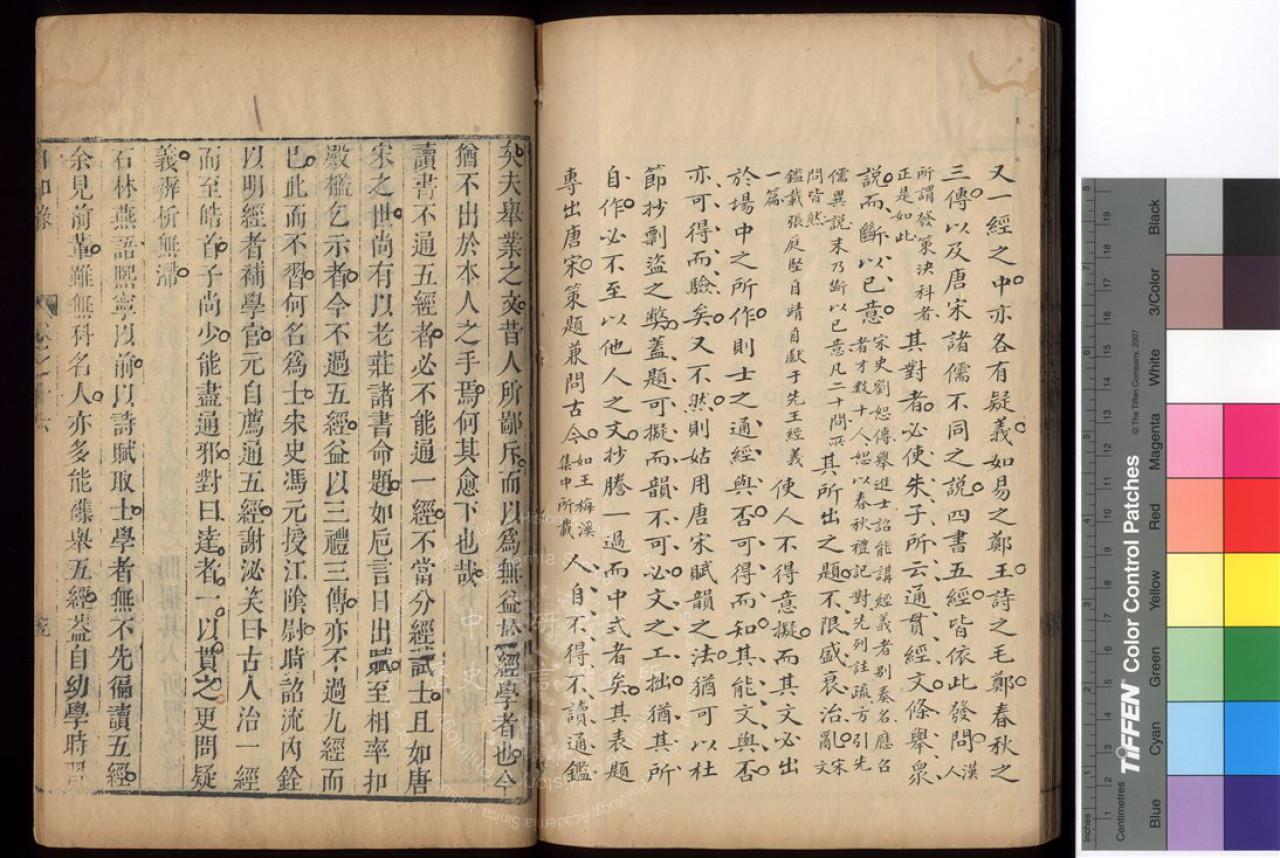 又一經之中亦各有疑義如易之鄭王詩之毛鄭春秋之
三傳以及唐宋諸儒不同之說四書五經皆依此發問漢人
所謂發策決科者正是如此其對者必使朱子所云通貫經文條舉衆
說而斷以已意宋史劉恕傳舉進士詔能講經義者別奏名應名者才數十人恕以春秋禮記對先列註疏方引先
儒異說末乃斷以已意凡二十問所問皆然其所出之題不限盛衰治亂宋文
鑑載張庭堅自靖自獻于先王經義一篇使人不得意擬而其文必出
於場中之所作則士之通經與否可得而知其能文與否
亦可得而驗矣又不然則姑用唐宋賦韻之法猶可以杜
節抄剽盜之弊蓋題可擬而韻不可必文之工拙猶其所
自作必不至以他人之文抄謄一過而中式者矣其表題
專出唐宋策題兼問古今如王梅溪集中所載人自不得不讀通鑑
矣夫舉業之文昔人所鄙斥而以爲無益於經學者也今
猶不出於本人之手焉何其愈下也哉
讀書不通五經者必不能通一經不當分經試士且如唐
宋之世尚有以老莊諸書命題如巵言日出賦至相率扣
殿檻乞示者今不過五經益以三禮三傳亦不過九經而
已此而不習何名爲士宋史馮元授江陰尉時詔流內銓
以明經者補學官元自薦通五經謝泌笑曰古人治一經
而至皓首子尚少能盡通邪對曰達者一以貫之更問疑
義辨析無滯
石林燕語熙寧以前以詩賦取士學者無不先徧讀五經
余見前輩雖無科名人亦多能雜舉五經葢自幼學時習
日知錄 卷之十六
Black
3/Color
White
Magenta
Red
Yellow
Green
Cyan
Blue
© The Tiffen Company, 2007
TIFFEN Color Control Patches
Centimetres
Inches